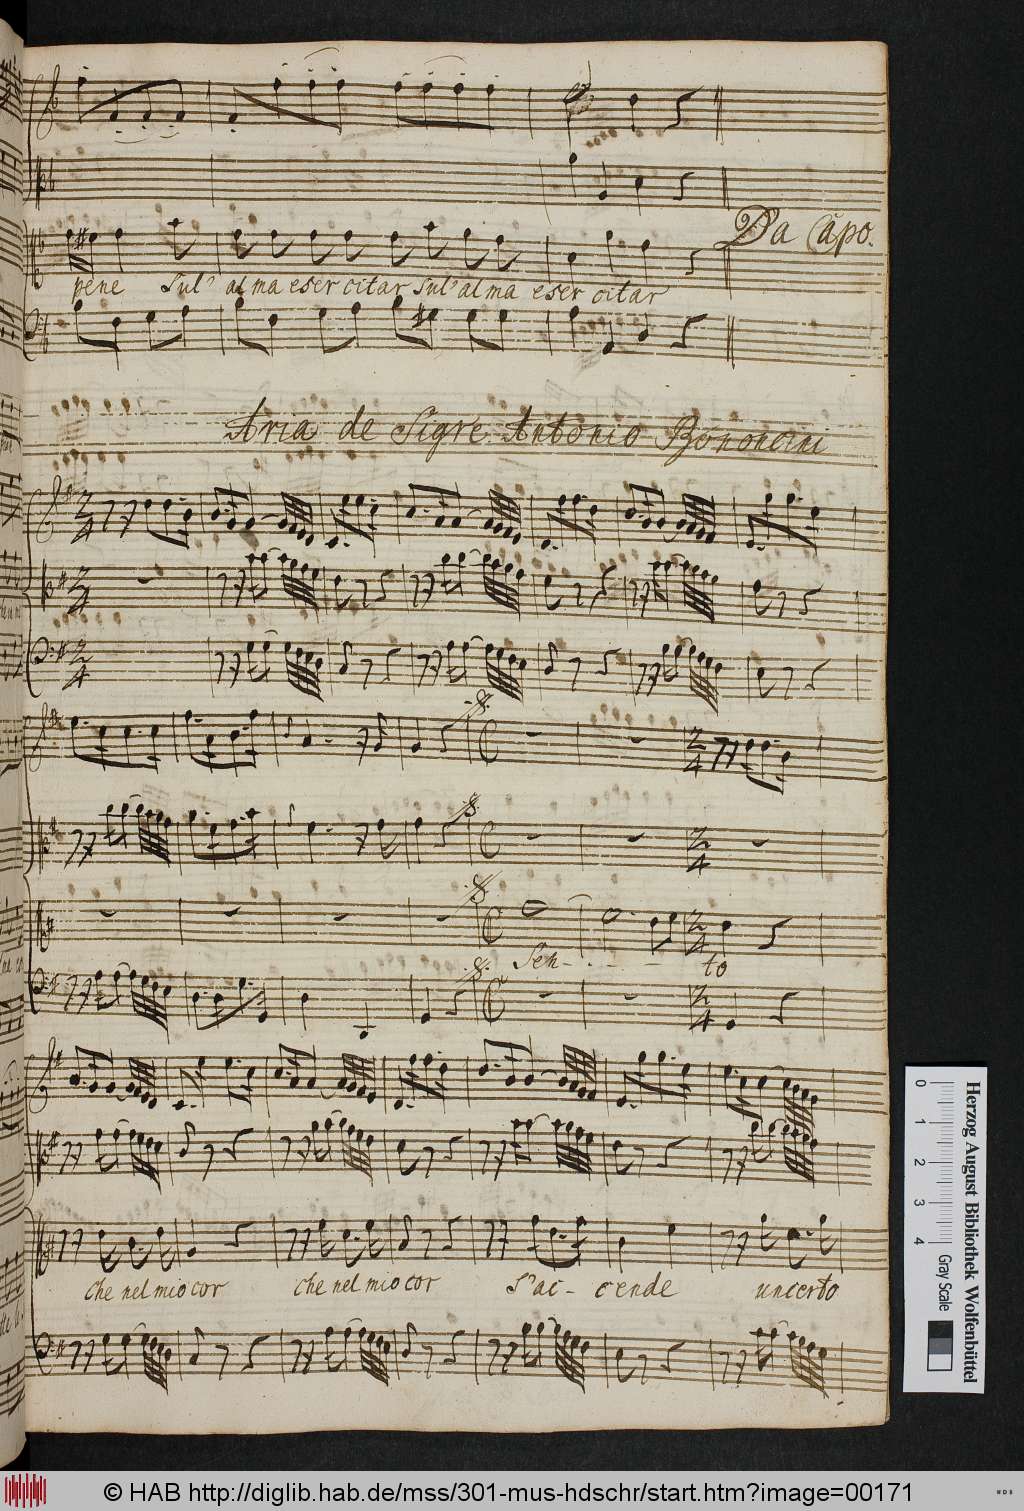 Da Capo.
pene sul' alma esercitar sul' alma esercitar
Aria de Sigre Antonio Bononcini
Sen - - - to
che nel mio cor che nel mio cor s'ac - cende un certo
Herzog August Bibliothek Wolfenbüttel
0 1 2 3 4 Gray Scale
© HAB http://diglib.hab.de/mss/301-mus-hdschr/start.htm?image=00171